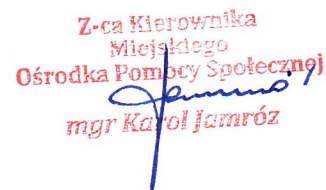 Z-ca Kierownika
Miejskiego
Ośrodka Pomocy Społecznej
mgr Karol Jamróz